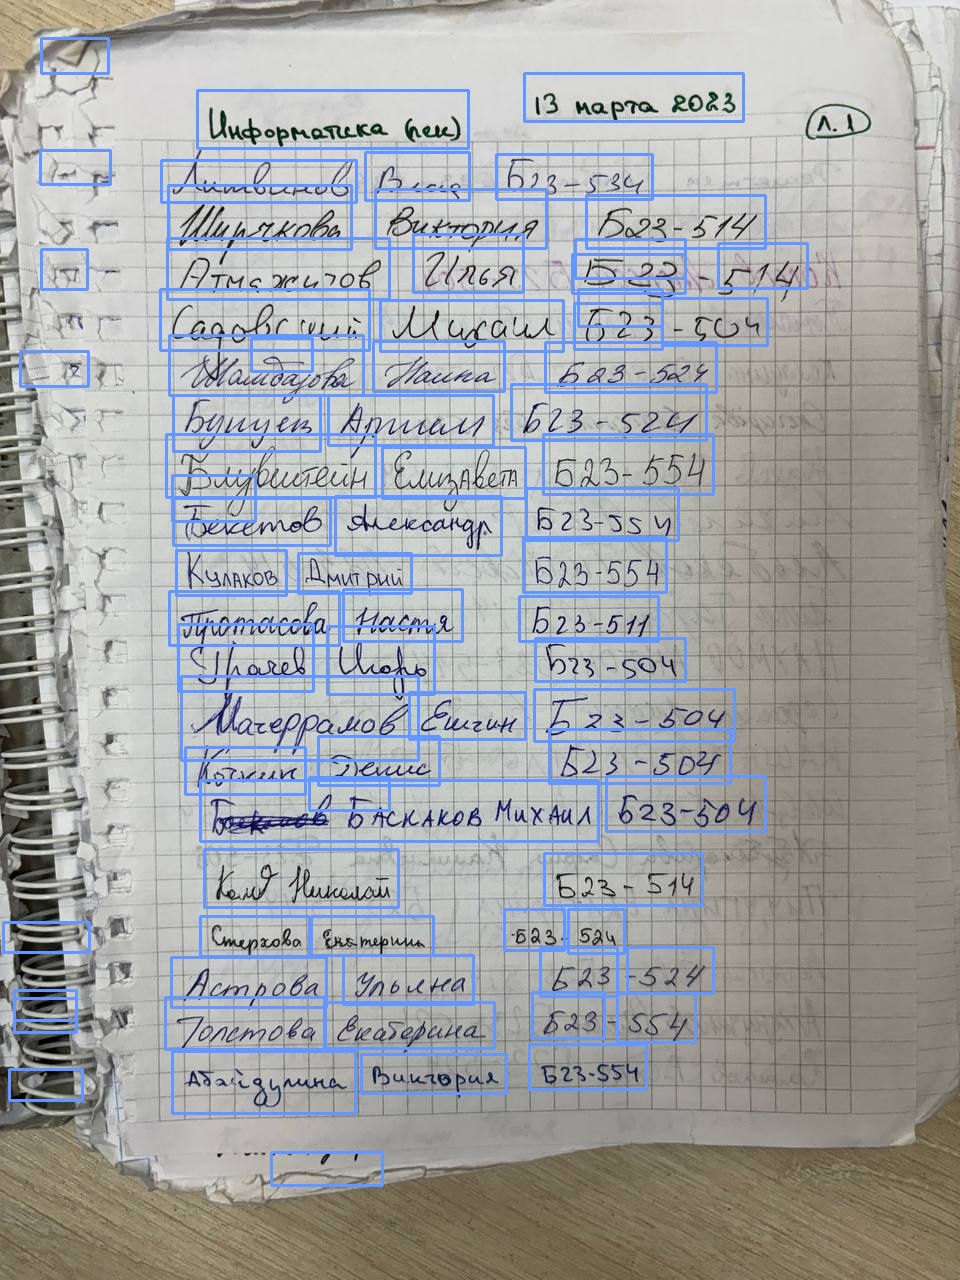 13 марта 2023
Информатика (лек)
Л. 1
Литвинов Влад Б23-534
Ширчкова Виктория Б23-514
Атмажитов Илья Б23-514
Садовский Михаил Б23-504
Наина Б23-524
Бунчук Артем Б23-524
Блувштейн Елизавета Б23-554
Бекетов Александр Б23-554
Кулаков Дмитрий Б23-554
Протасова Настя Б23-511
Грачев Игорь Б23-504
Магеррамов Ельчин Б23-504
Денис Б23-504
Баскаков Михаил Б23-504
Николай Б23-514
Стерхова Екатерина Б23-524
Астрова Ульяна Б23-524
Толстова Екатерина Б23-554
Абайдулина Виктория Б23-554